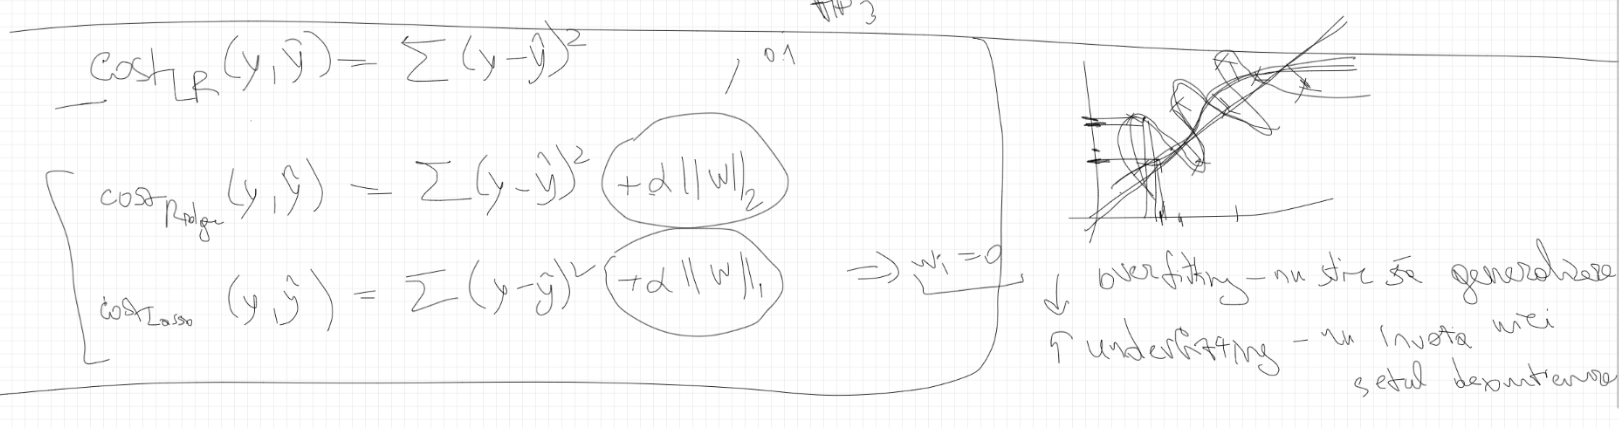 3
cost_LR (y, ŷ) = Σ (y - ŷ)²
, 0.1
cost_Ridge (y, ŷ) = Σ (y - ŷ)² + α ||w||₂
cost_Lasso (y, ŷ) = Σ (y - ŷ)² + α ||w||₁ ⇒ w_i = 0
↓ overfitting - nu stie să generalizeze
↑ underfitting - nu invata nici
setul de antrenare